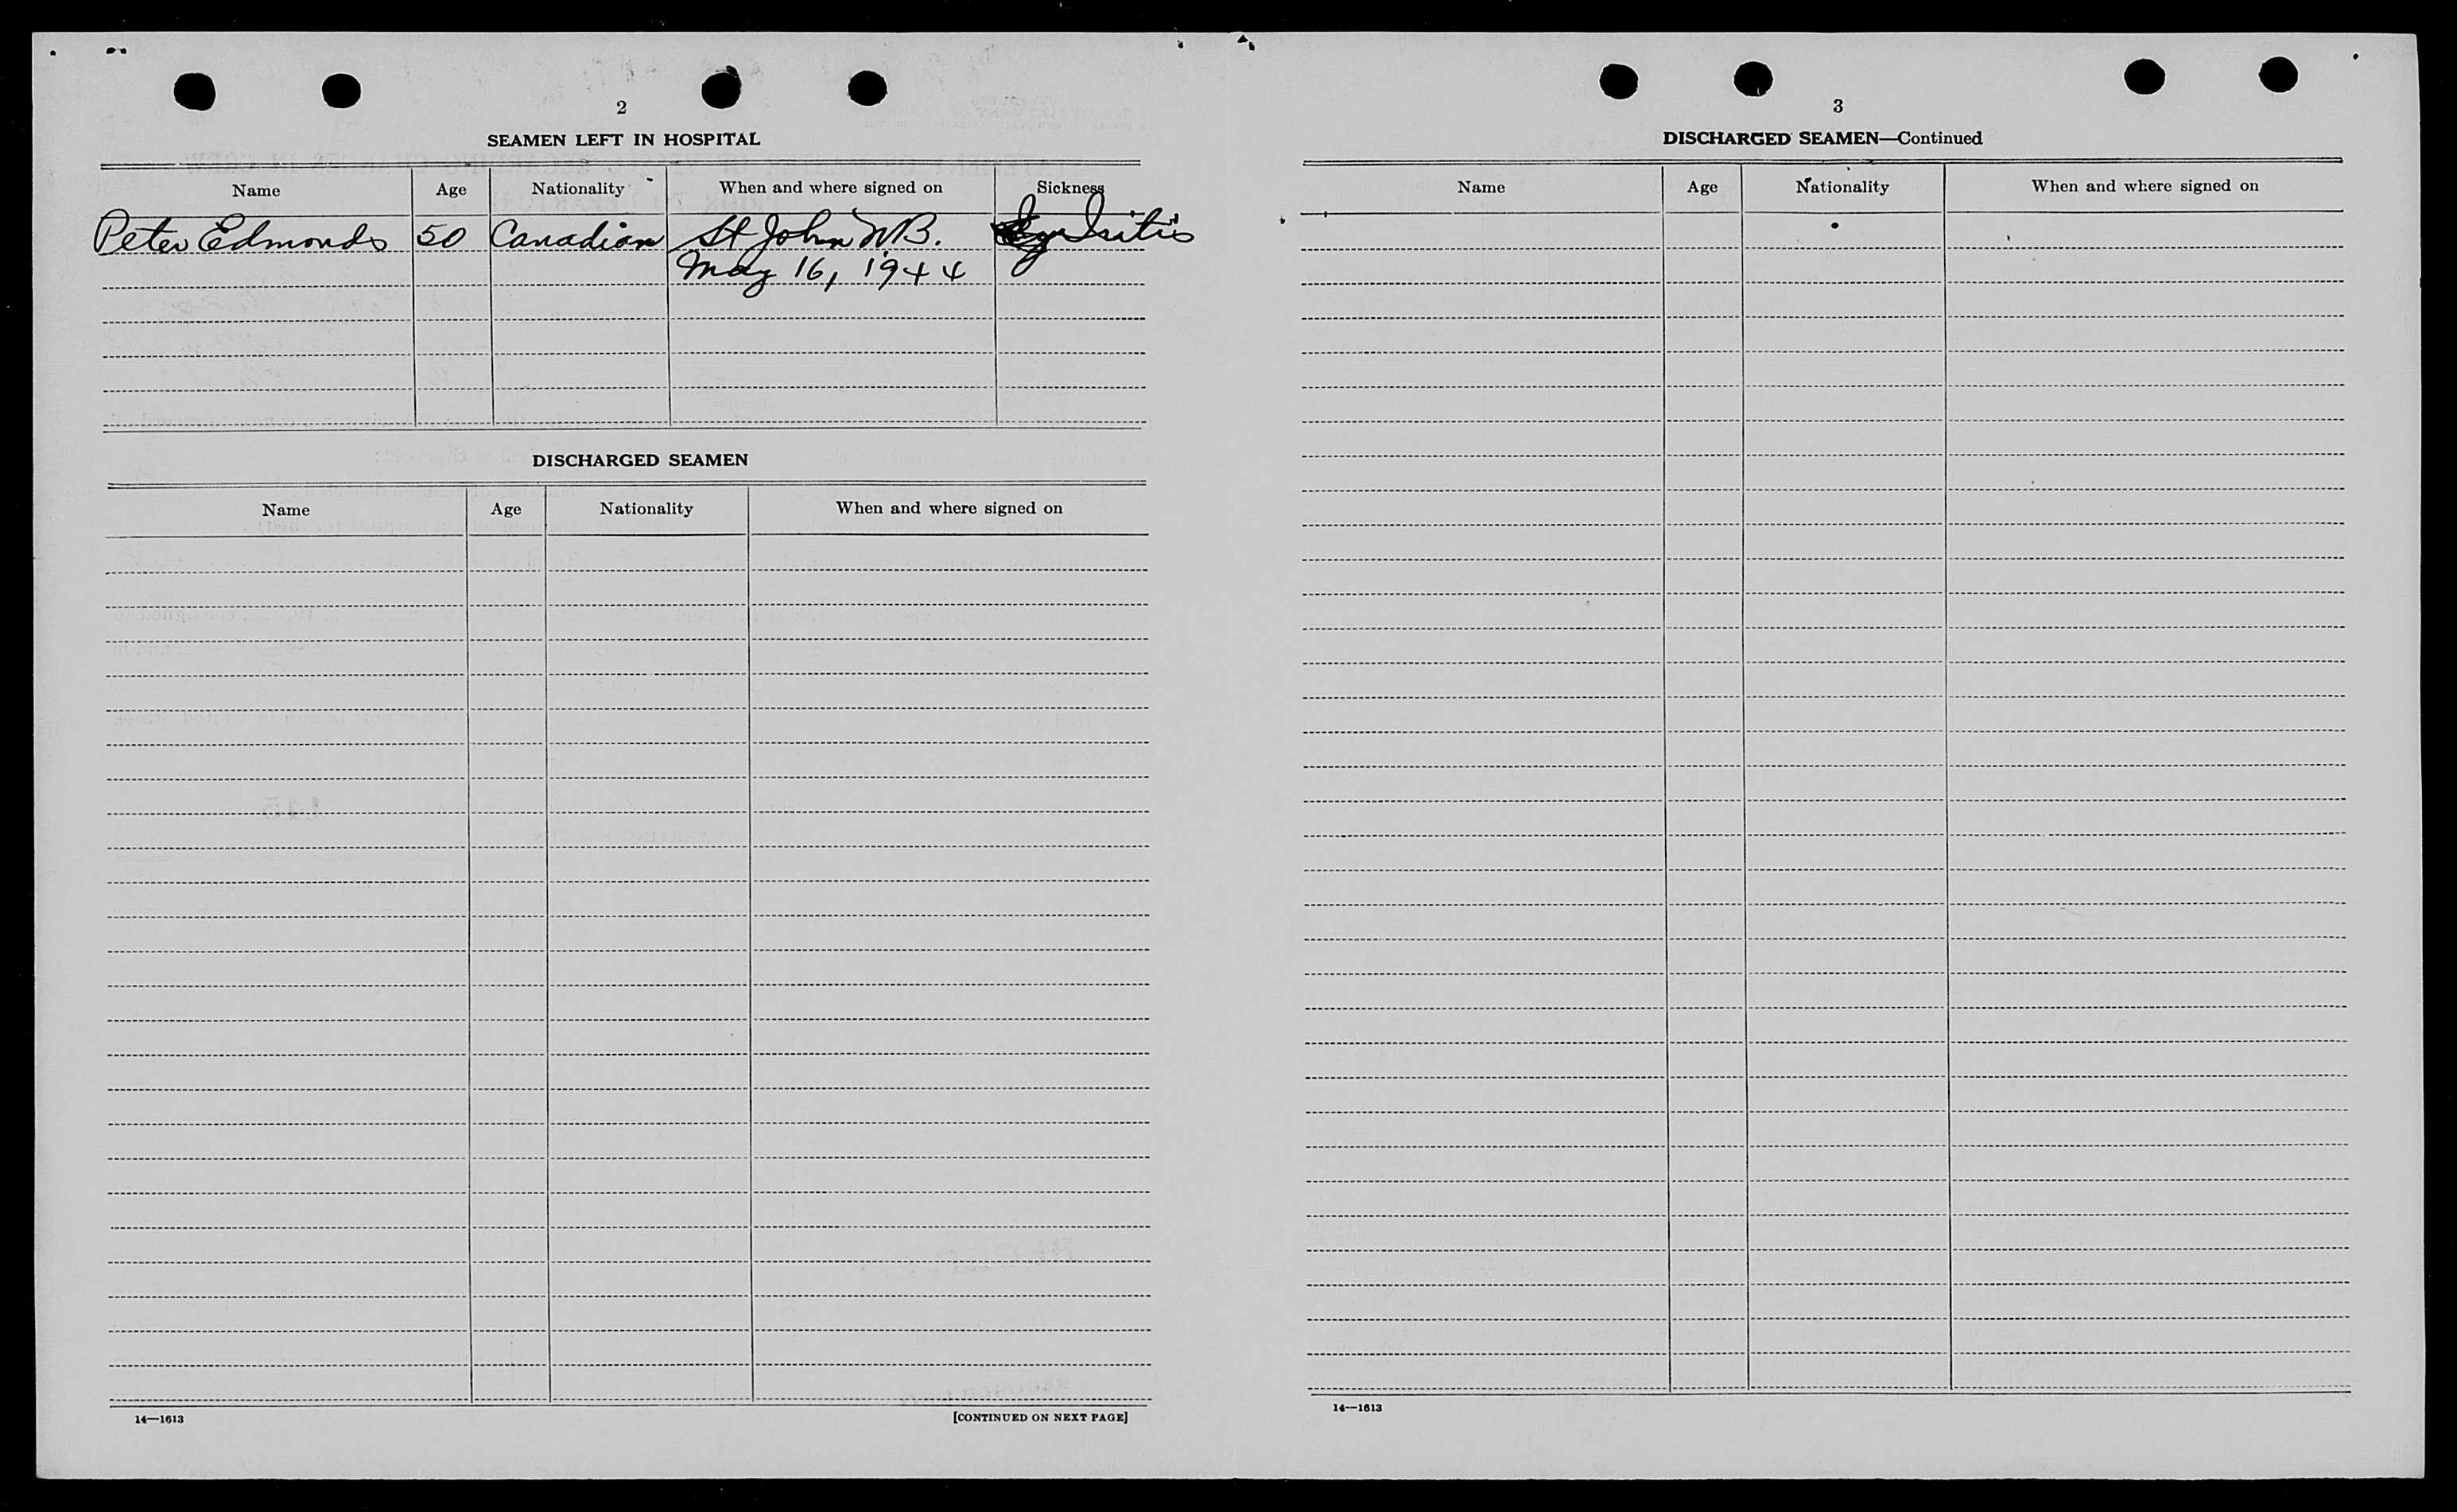 2
SEAMEN LEFT IN HOSPITAL
Name Age Nationality When and where signed on Sickness
Peter Edmonds 50 Canadian St John N.B. Iritis
May 16, 1944
DISCHARGED SEAMEN
Name Age Nationality When and where signed on
14—1613 [CONTINUED ON NEXT PAGE]
3
DISCHARGED SEAMEN—Continued
Name Age Nationality When and where signed on
14—1613